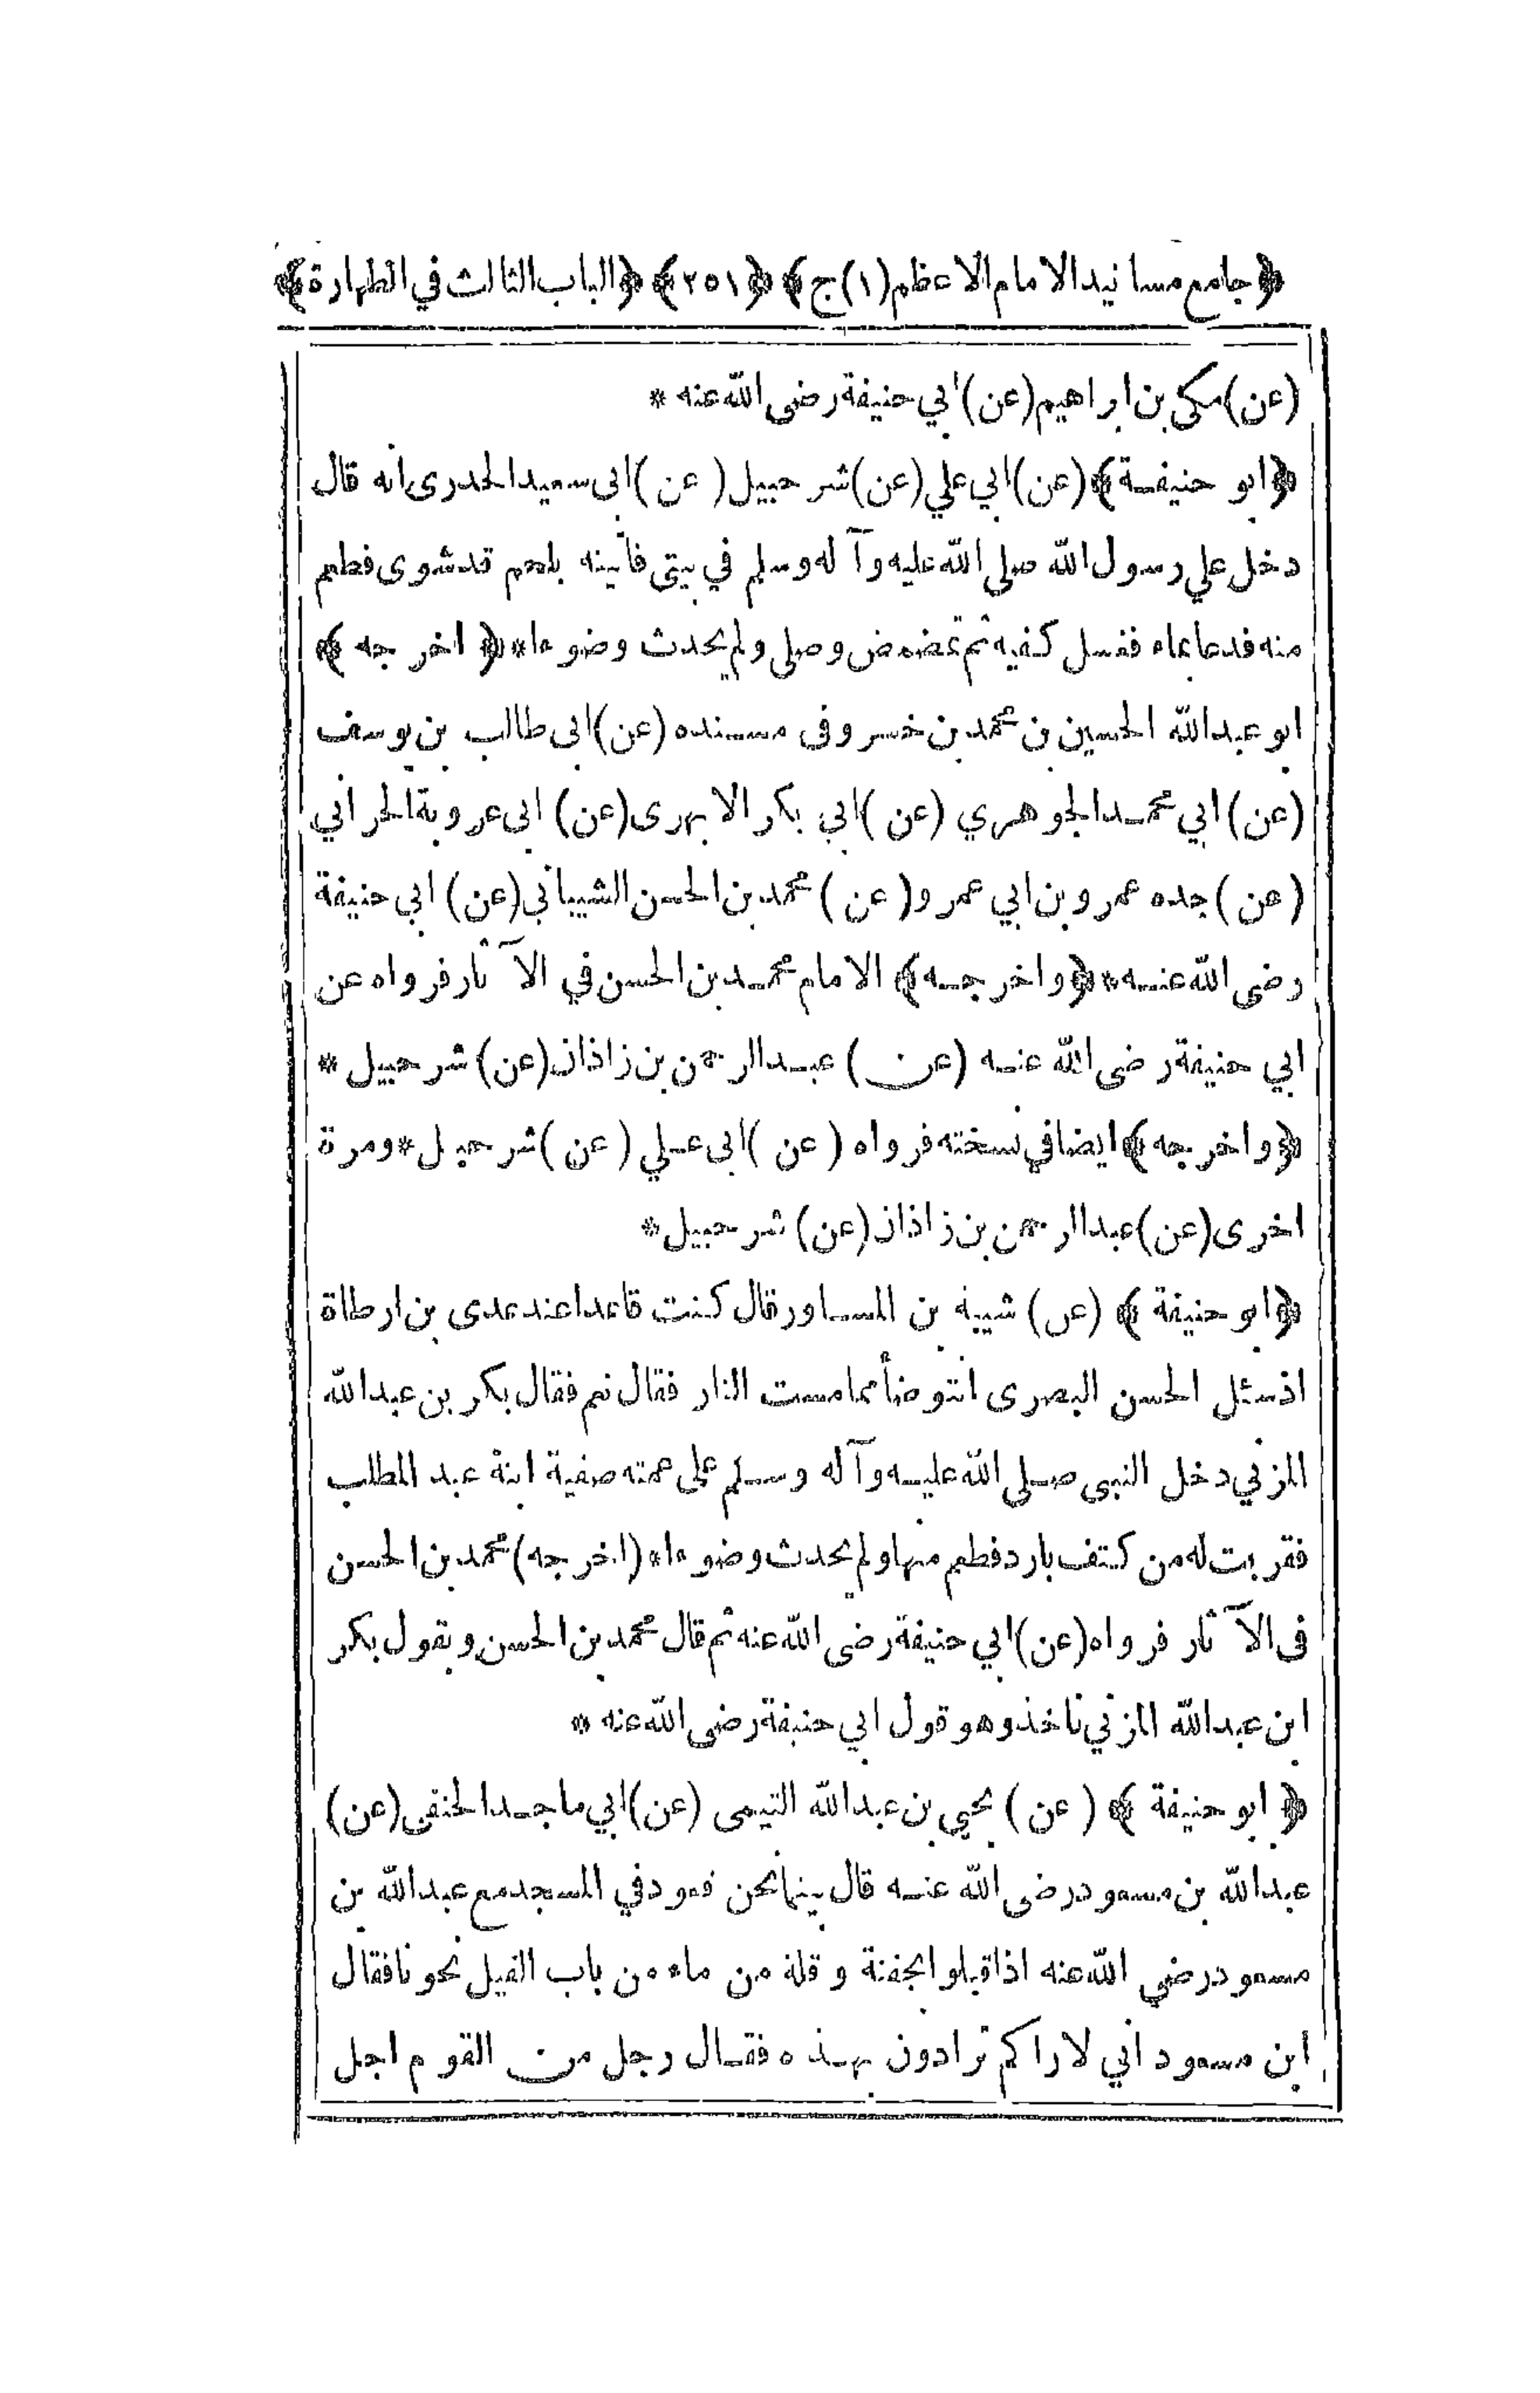 ﴿جامع مسانيد الامام الاعظم (١) ج﴾ ﴿٢٥١﴾ ﴿الباب الثالث في الطهارة﴾
(عن) مكى بن ابراهيم (عن) ابي حنيفة رضى الله عنه *
﴿ابو حنيفة﴾ (عن) ابي علي (عن) شرحبيل (عن) ابى سعيد الخدرى انه قال
دخل علي رسول الله صلى الله عليه وآله وسلم في بيتى فأتينه بلحم قد شوى فطعم
منه فدعا بماء فغسل كفيه ثم تمضمض وصلى ولم يحدث وضوءا * ﴿اخرجه﴾
ابو عبد الله الحسين بن محمد بن خسرو فى مسنده (عن) ابى طالب بن يوسف
(عن) ابي محمد الجوهري (عن) ابي بكر الابهرى (عن) ابى عروبة الحراني
(عن) جده عمرو بن ابي عمرو (عن) محمد بن الحسن الشيباني (عن) ابي حنيفة
رضى الله عنه * ﴿واخرجه﴾ الامام محمد بن الحسن في الآثار فرواه عن
ابي حنيفة رضى الله عنه (عن) عبد الرحمن بن زاذان (عن) شرحبيل *
﴿واخرجه﴾ ايضا في نسخته فرواه (عن) ابى علي (عن) شرحبيل * ومرة
اخرى (عن) عبد الرحمن بن زاذان (عن) شرحبيل *
﴿ابو حنيفة﴾ (عن) شيبة بن المساور قال كنت قاعدا عند عدى بن ارطاة
اذ سئل الحسن البصرى انتوضأ مما مست النار فقال نعم فقال بكر بن عبد الله
المزني دخل النبى صلى الله عليه وآله وسلم على عمته صفية ابنة عبد المطلب
فقربت له من كتف بارد فطعم منها ولم يحدث وضوءا * (اخرجه) محمد بن الحسن
فى الآثار فرواه (عن) ابي حنيفة رضى الله عنه ثم قال محمد بن الحسن وبقول بكر
ابن عبد الله المزني نأخذ وهو قول ابي حنيفة رضى الله عنه *
﴿ابو حنيفة﴾ (عن) يحيى بن عبد الله التيمى (عن) ابي ماجد الحنفى (عن)
عبد الله بن مسعود رضى الله عنه قال بينما نحن قعود في المسجد مع عبد الله بن
مسعود رضي الله عنه اذ اقبلوا بجفنة وقلة من ماء من باب الفيل نحونا فقال
ابن مسعود اني لاراكم ترادون بهذه فقال رجل من القوم اجل